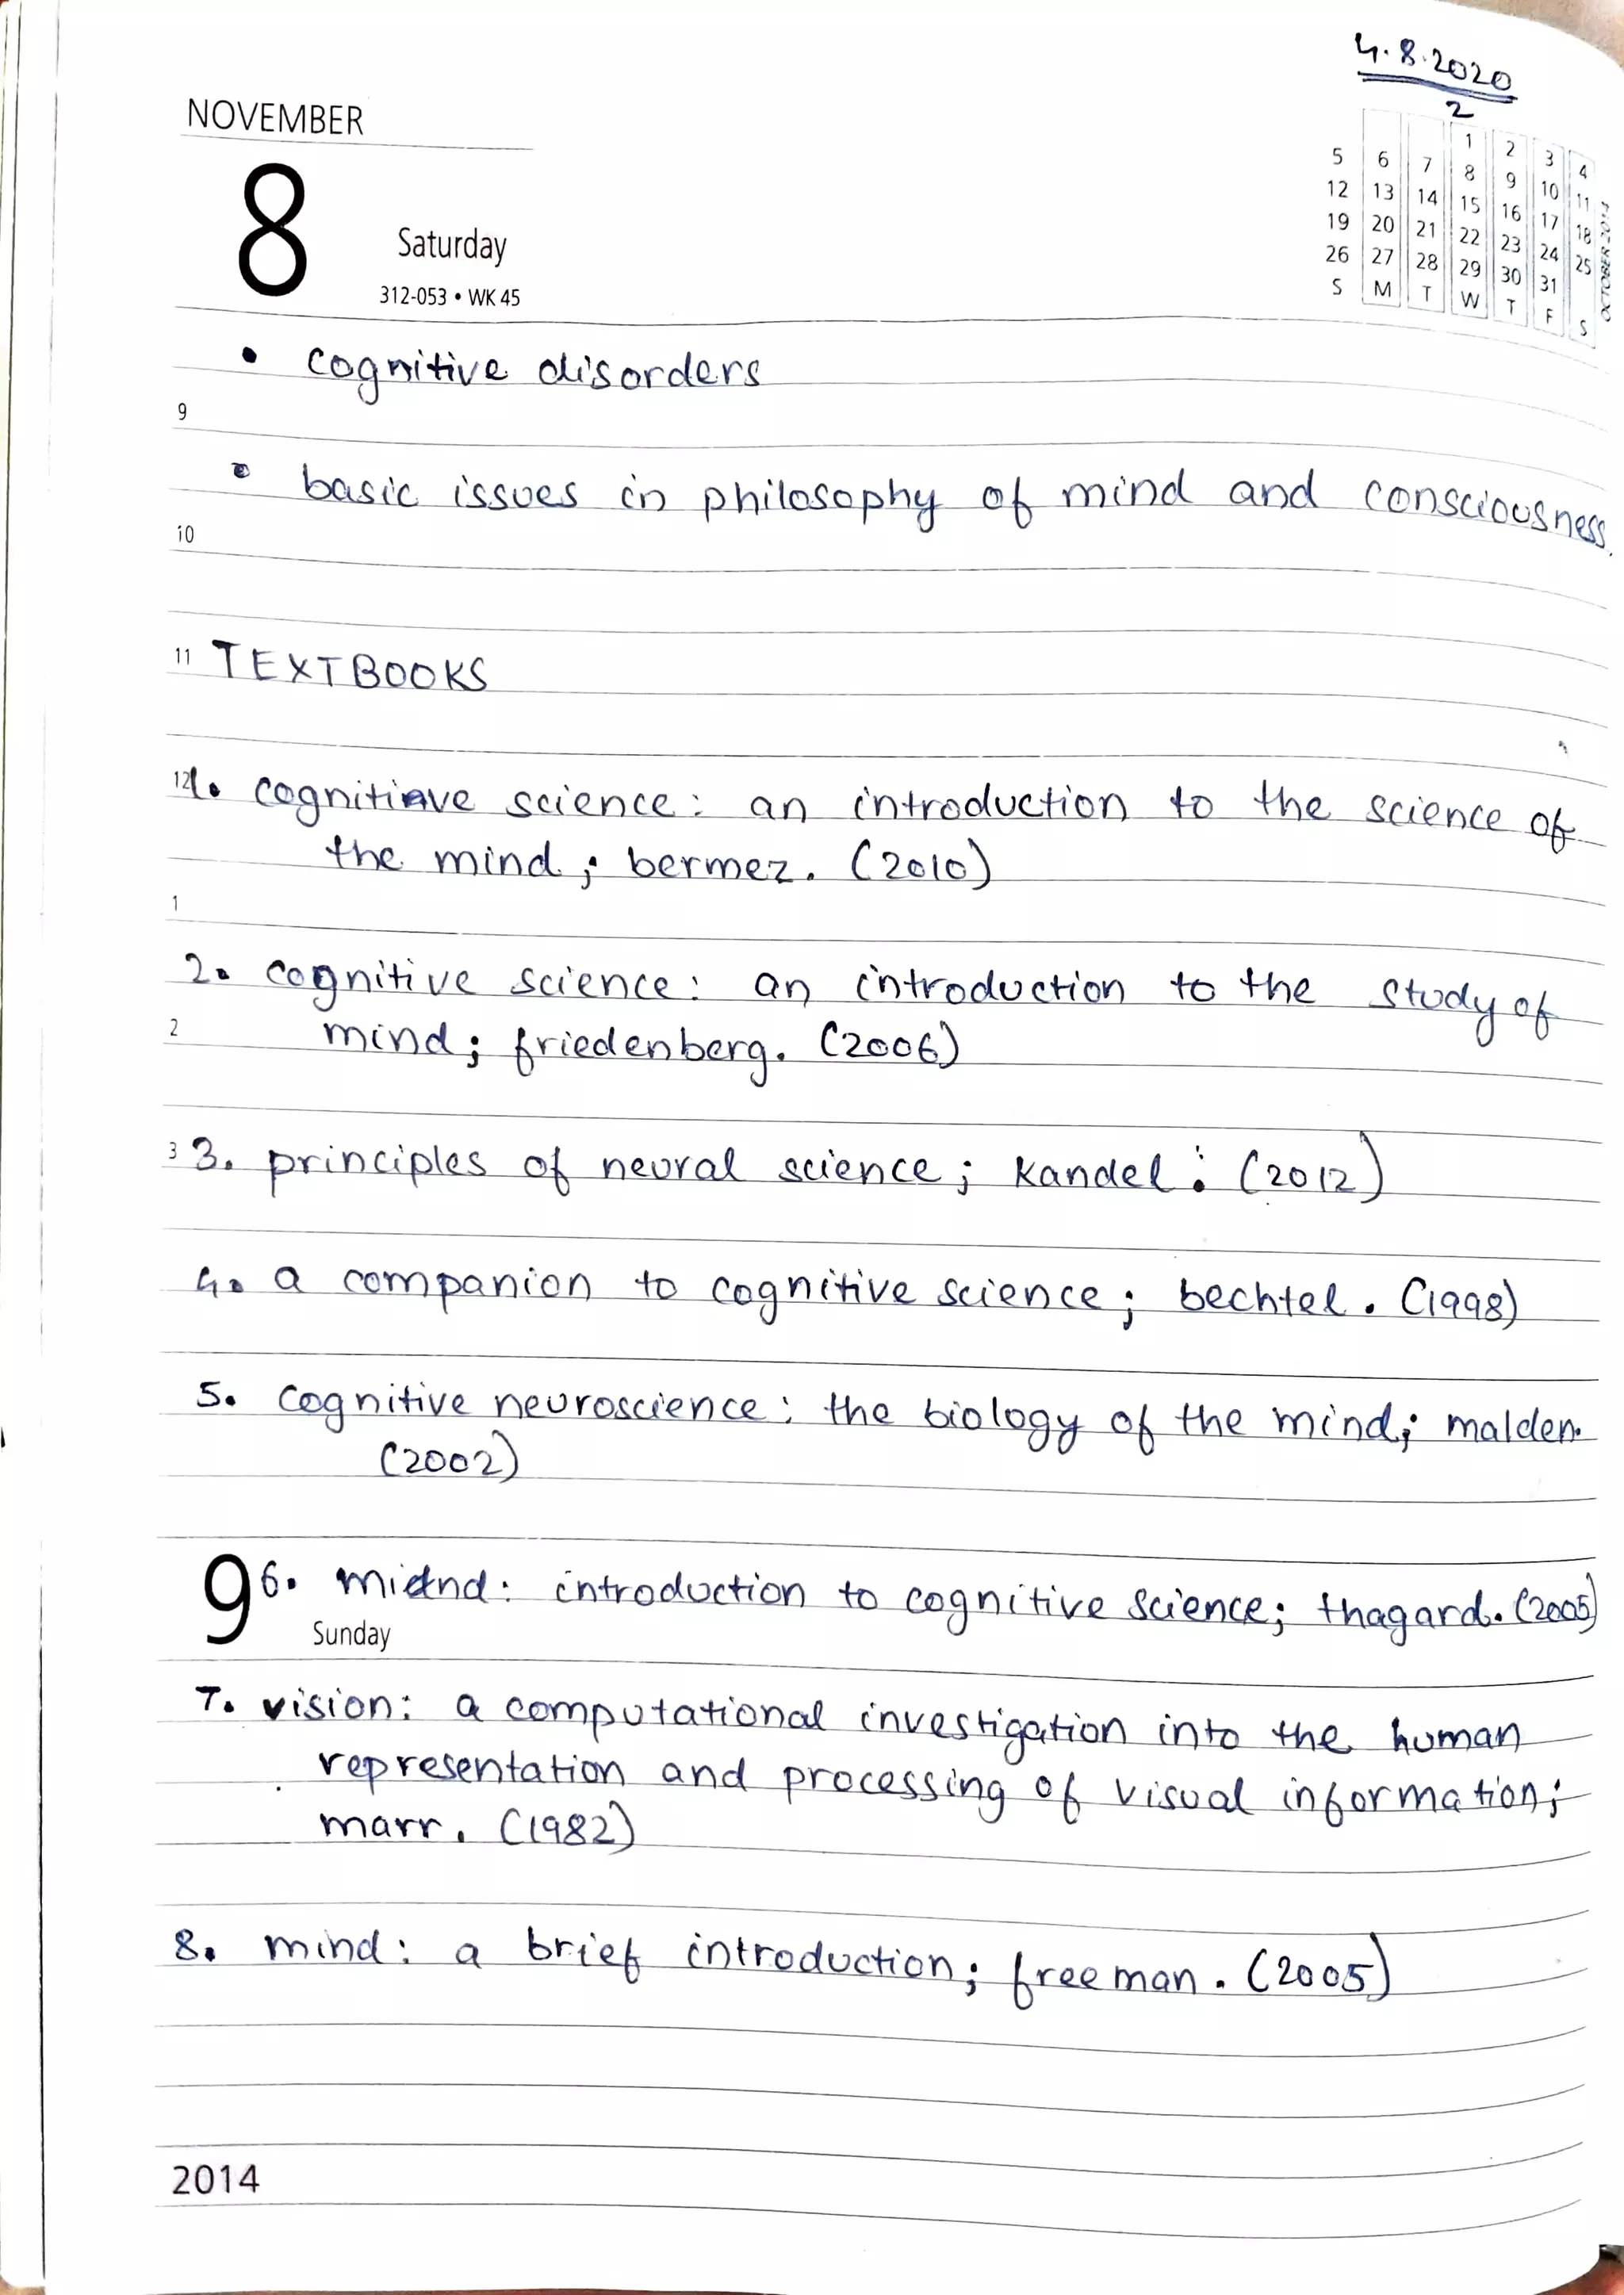 4.8.2020
2
NOVEMBER
8
Saturday
312-053 • WK 45
1 2 3 4
5 6 7 8 9 10 11
12 13 14 15 16 17 18
19 20 21 22 23 24 25
26 27 28 29 30 31
S M T W T F S
OCTOBER 2014
• cognitive disorders
9
• basic issues in philosophy of mind and consciousness.
10
11 TEXTBOOKS
12 1. cognitive science: an introduction to the science of
the mind; bermez. (2010)
1
2. cognitive science: an introduction to the study of
2 mind; friedenberg. (2006)
3 3. principles of neural science; kandel. (2012)
4. a companion to cognitive science; bechtel. (1998)
5. cognitive neuroscience: the biology of the mind; malden.
(2002)
9 6. mind: introduction to cognitive science; thagard. (2005)
Sunday
7. vision: a computational investigation into the human
representation and processing of visual information;
marr. (1982)
8. mind: a brief introduction; freeman. (2005)
2014